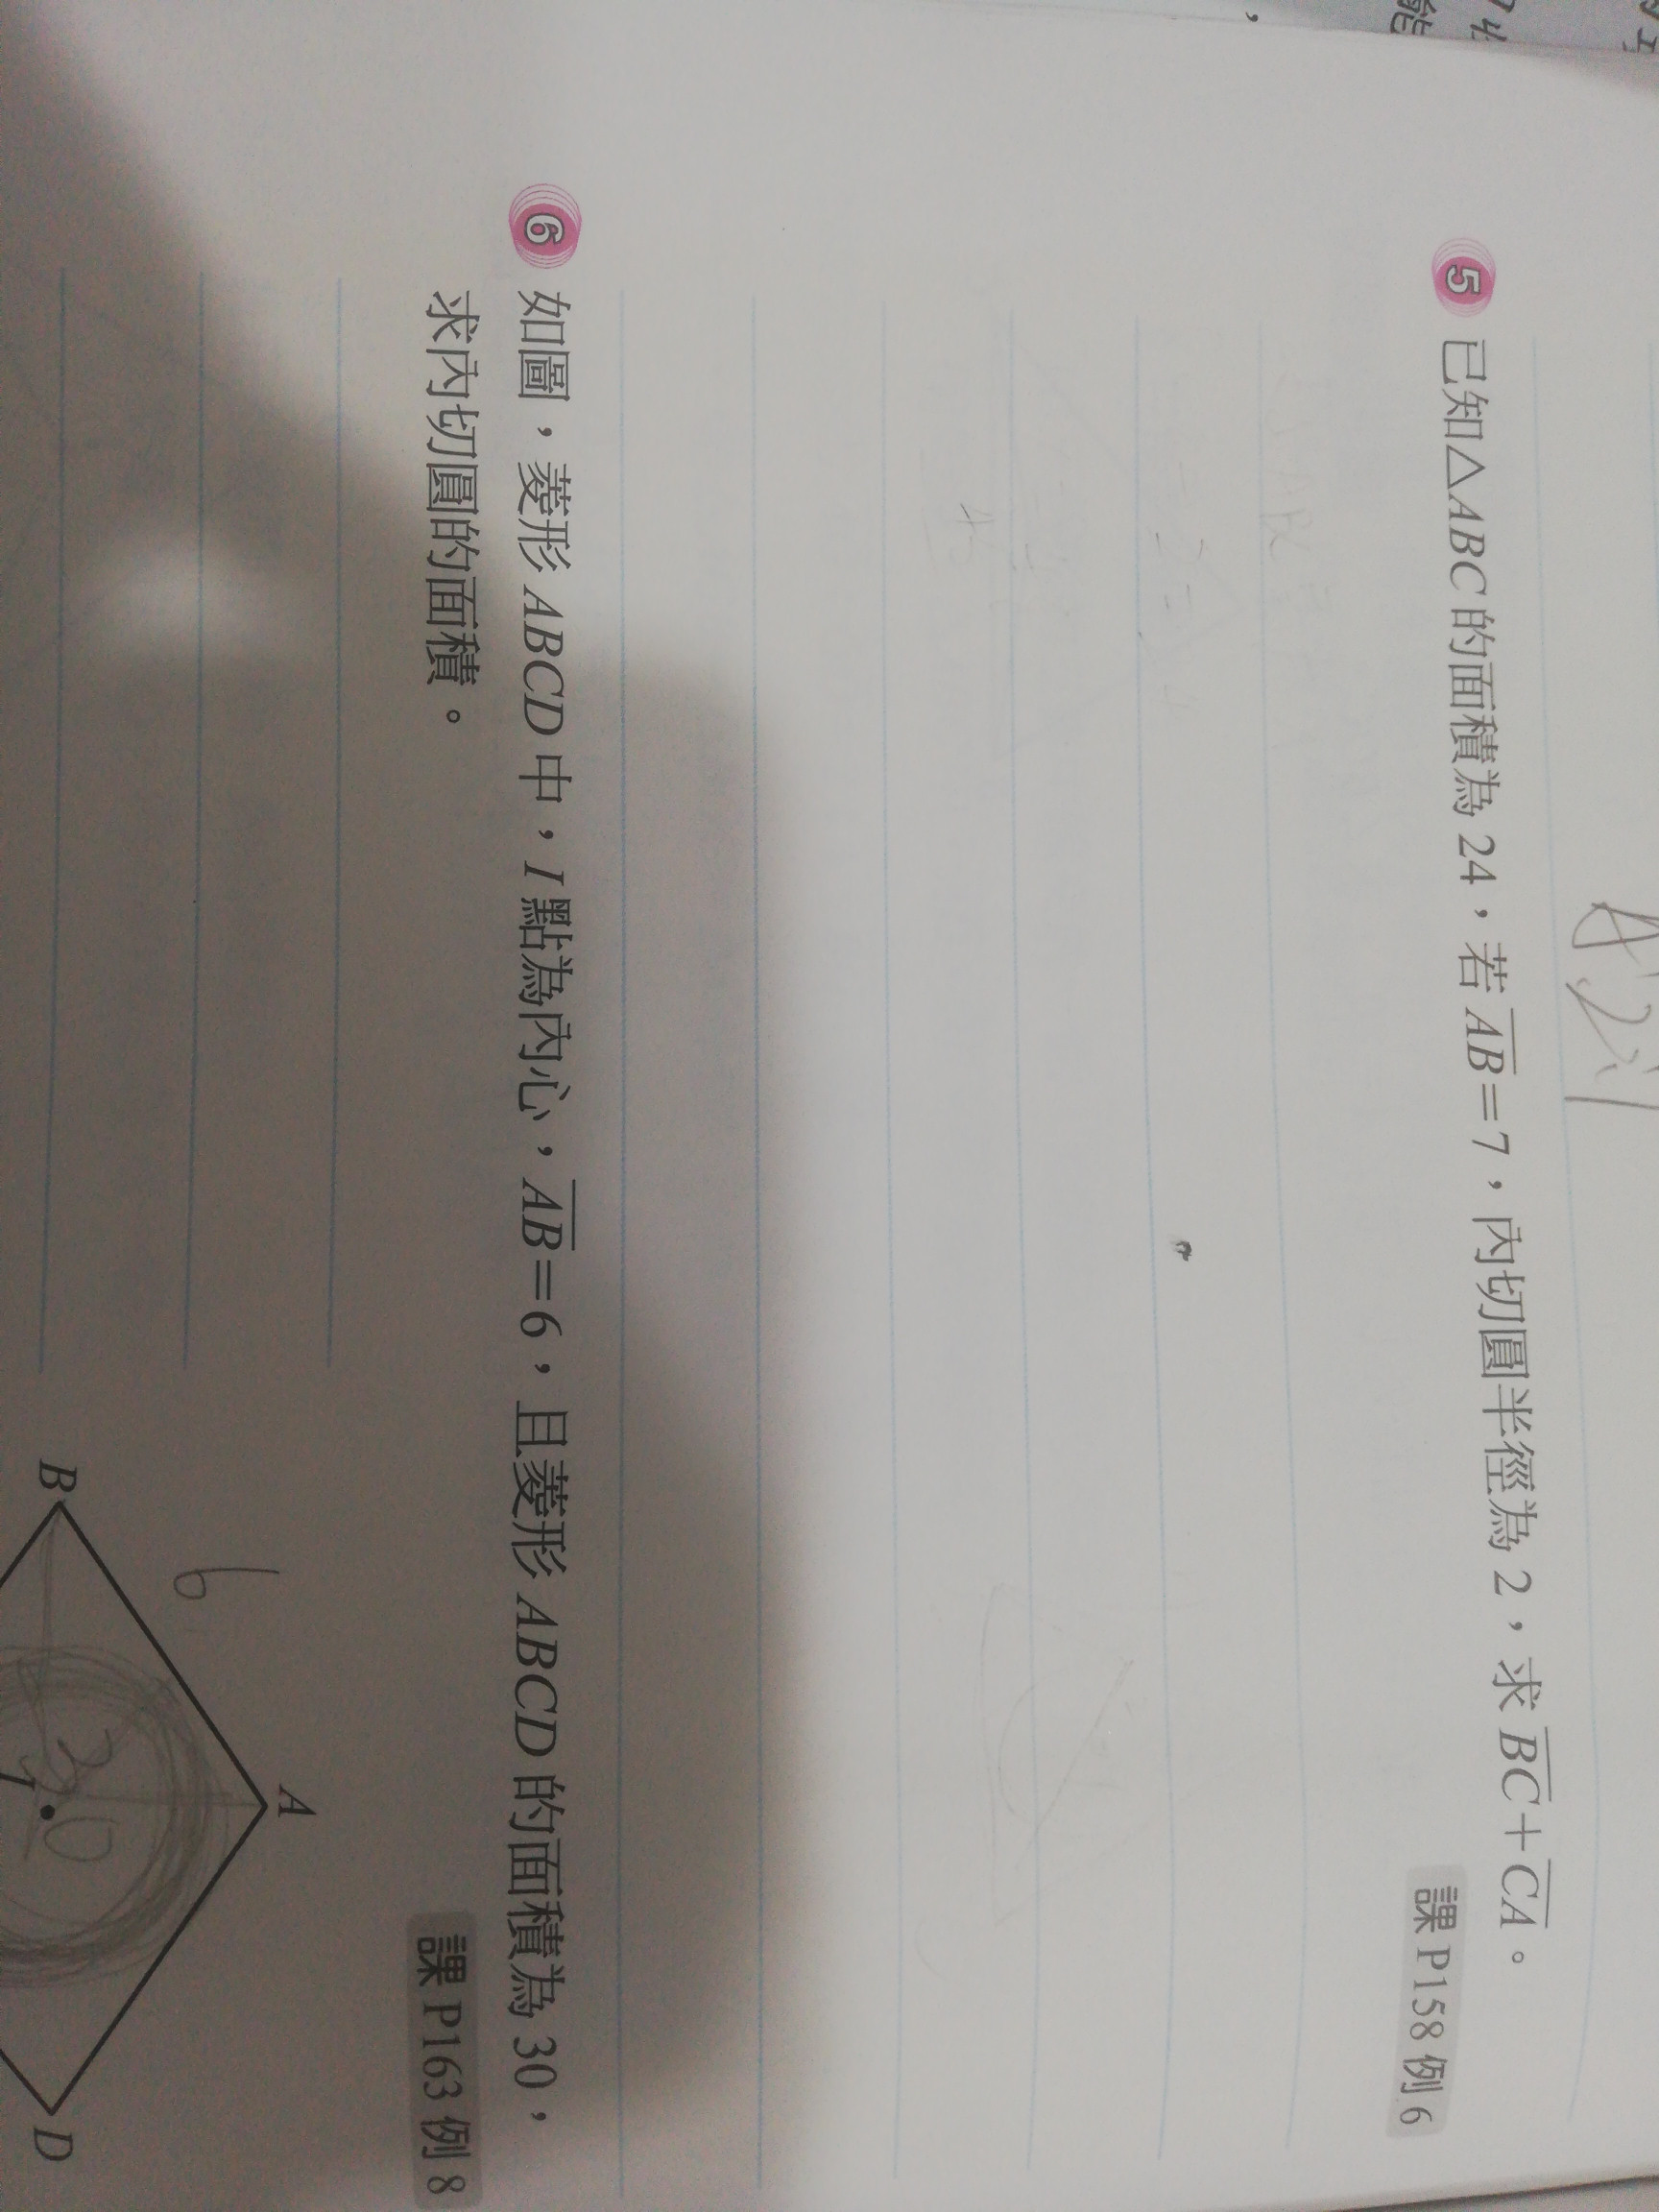 能
5 已知△ABC的面積為24，若AB=7，內切圓半徑為2，求BC+CA。
課P158例6
6 如圖，菱形ABCD中，I點為內心，AB=6，且菱形ABCD的面積為30，
求內切圓的面積。
課P163例8
A
6
B
30
I
D